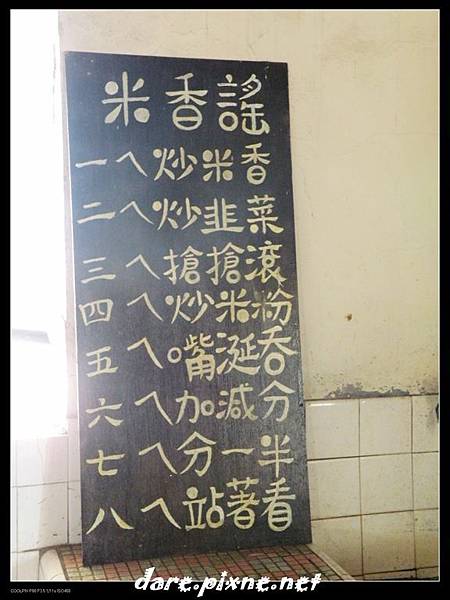 米香謠
一ㄟ炒米香
二ㄟ炒韭菜
三ㄟ搶搶滾
四ㄟ炒米粉
五ㄟ嘴涎吞
六ㄟ加減分
七ㄟ分一半
八ㄟ站著看
dare.pixne.net